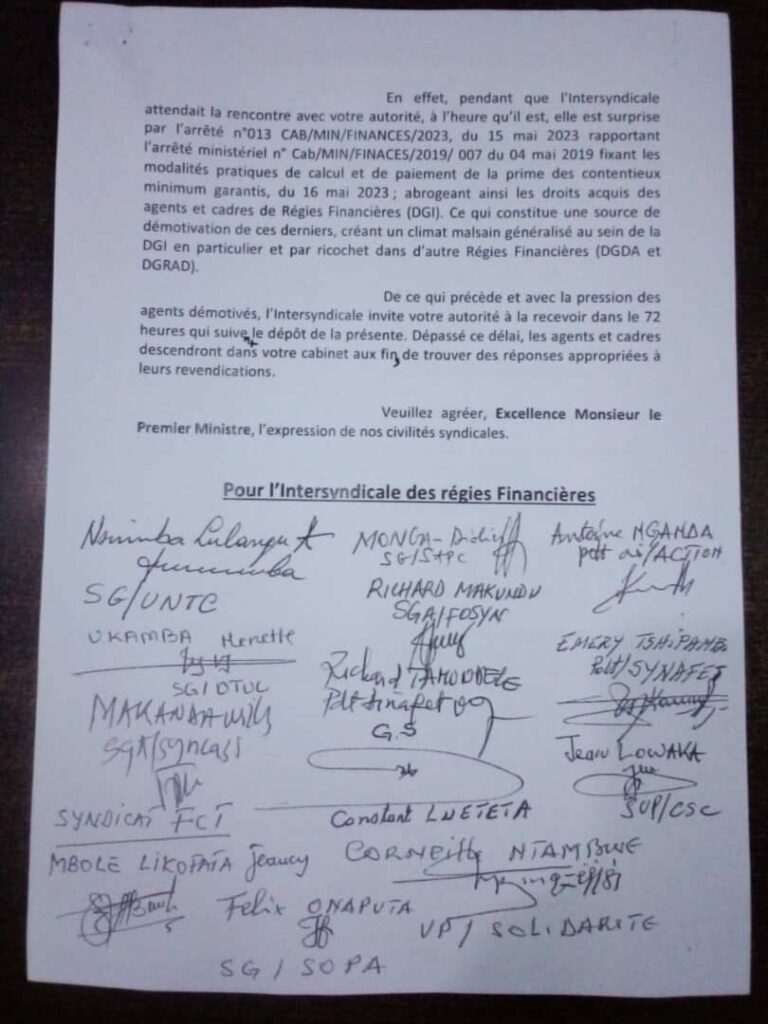 En effet, pendant que l'Intersyndicale
attendait la rencontre avec votre autorité, à l'heure qu'il est, elle est surprise
par l'arrêté n°013 CAB/MIN/FINANCES/2023, du 15 mai 2023 rapportant
l'arrêté ministériel n° Cab/MIN/FINACES/2019/ 007 du 04 mai 2019 fixant les
modalités pratiques de calcul et de paiement de la prime des contentieux
minimum garantis, du 16 mai 2023 ; abrogeant ainsi les droits acquis des
agents et cadres de Régies Financières (DGI). Ce qui constitue une source de
démotivation de ces derniers, créant un climat malsain généralisé au sein de la
DGI en particulier et par ricochet dans d'autre Régies Financières (DGDA et
DGRAD).
De ce qui précède et avec la pression des
agents démotivés, l'Intersyndicale invite votre autorité à la recevoir dans le 72
heures qui suive le dépôt de la présente. Dépassé ce délai, les agents et cadres
descendront dans votre cabinet aux fin de trouver des réponses appropriées à
leurs revendications.
Veuillez agréer, Excellence Monsieur le
Premier Ministre, l'expression de nos civilités syndicales.
Pour l'Intersyndicale des régies Financières
Nsimba Lulangu A
SG/UNTC
UKAMBA
SG/OTUC
SYNDICAT FCT
MBOLE LIKOFATA Jeancy
MONGA-Didier
RICHARD MAKUNDU
SGA/FOSYN
Richard
G.S
Constant LUETETA
CORNEILLE NTAMBWE
Felix ONAPUTA
SG/SOPA
VP/SOLIDARITE
Antoine NGANDA
pdt ai/ACTION
EMERY TSHIPAMB
Pdt/SYNAFET
Jean LOWAKA
SUP/CSC